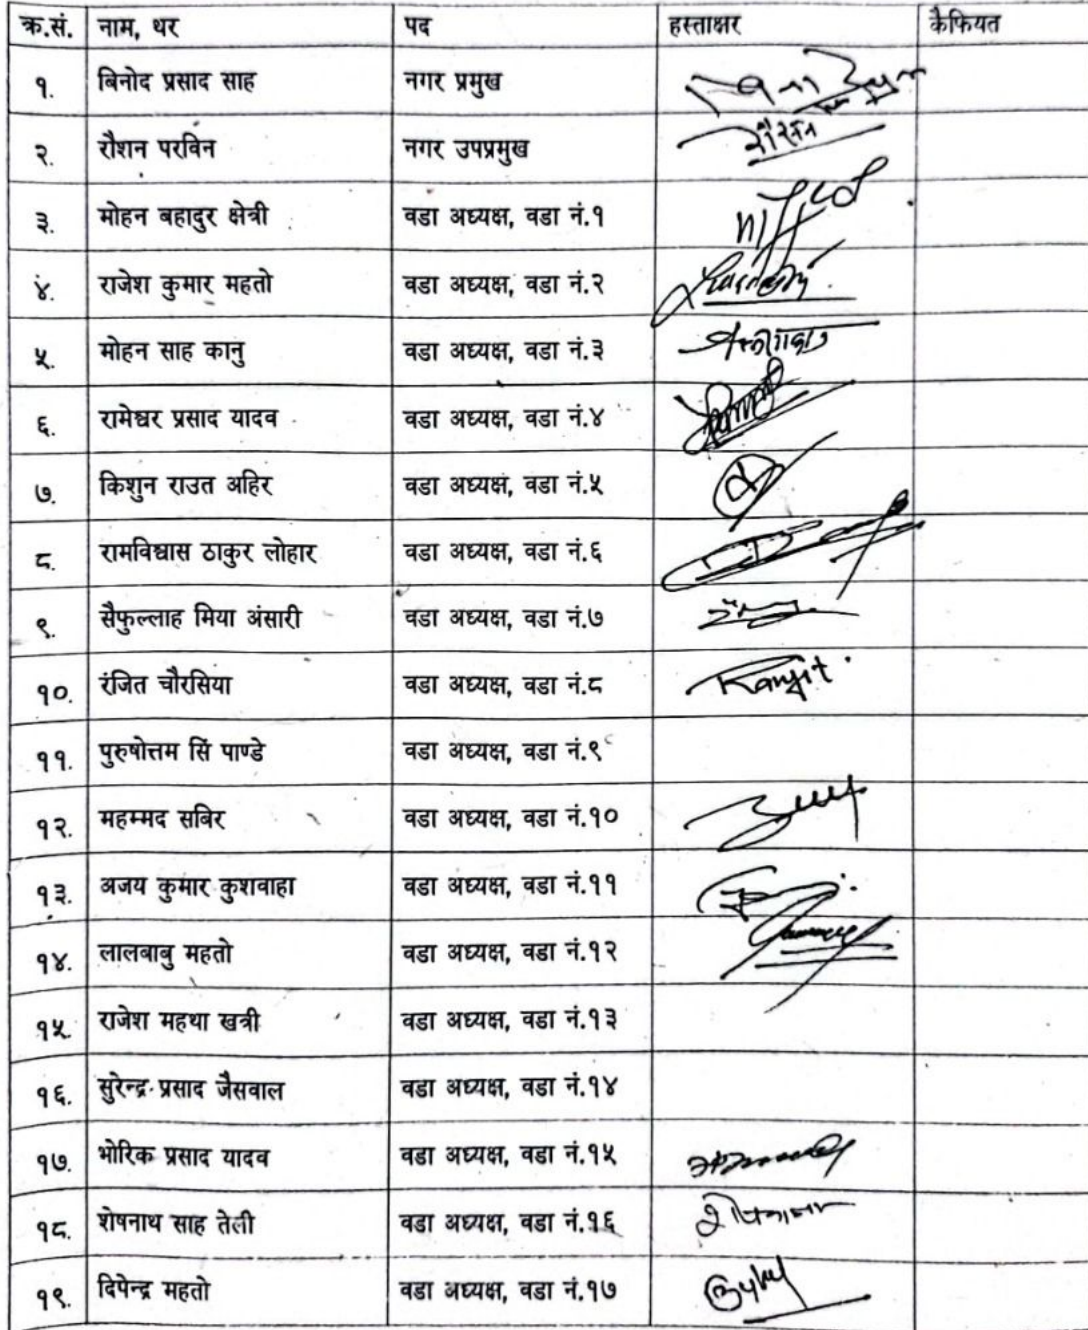 क्र.सं. नाम, थर पद हस्ताक्षर कैफियत
१. बिनोद प्रसाद साह नगर प्रमुख
२. रौशन परविन नगर उपप्रमुख रौशन
३. मोहन बहादुर क्षेत्री वडा अध्यक्ष, वडा नं.१
४. राजेश कुमार महतो वडा अध्यक्ष, वडा नं.२
५. मोहन साह कानु वडा अध्यक्ष, वडा नं.३
६. रामेश्वर प्रसाद यादव वडा अध्यक्ष, वडा नं.४
७. किशुन राउत अहिर वडा अध्यक्ष, वडा नं.५
८. रामविश्वास ठाकुर लोहार वडा अध्यक्ष, वडा नं.६
९. सैफुल्लाह मिया अंसारी वडा अध्यक्ष, वडा नं.७
१०. रंजित चौरसिया वडा अध्यक्ष, वडा नं.८ Ranjit
११. पुरुषोत्तम सिं पाण्डे वडा अध्यक्ष, वडा नं.९
१२. महम्मद सबिर वडा अध्यक्ष, वडा नं.१०
१३. अजय कुमार कुशवाहा वडा अध्यक्ष, वडा नं.११
१४. लालबाबु महतो वडा अध्यक्ष, वडा नं.१२
१५. राजेश महथा खत्री वडा अध्यक्ष, वडा नं.१३
१६. सुरेन्द्र प्रसाद जैसवाल वडा अध्यक्ष, वडा नं.१४
१७. भोरिक प्रसाद यादव वडा अध्यक्ष, वडा नं.१५
१८. शेषनाथ साह तेली वडा अध्यक्ष, वडा नं.१६
१९. दिपेन्द्र महतो वडा अध्यक्ष, वडा नं.१७